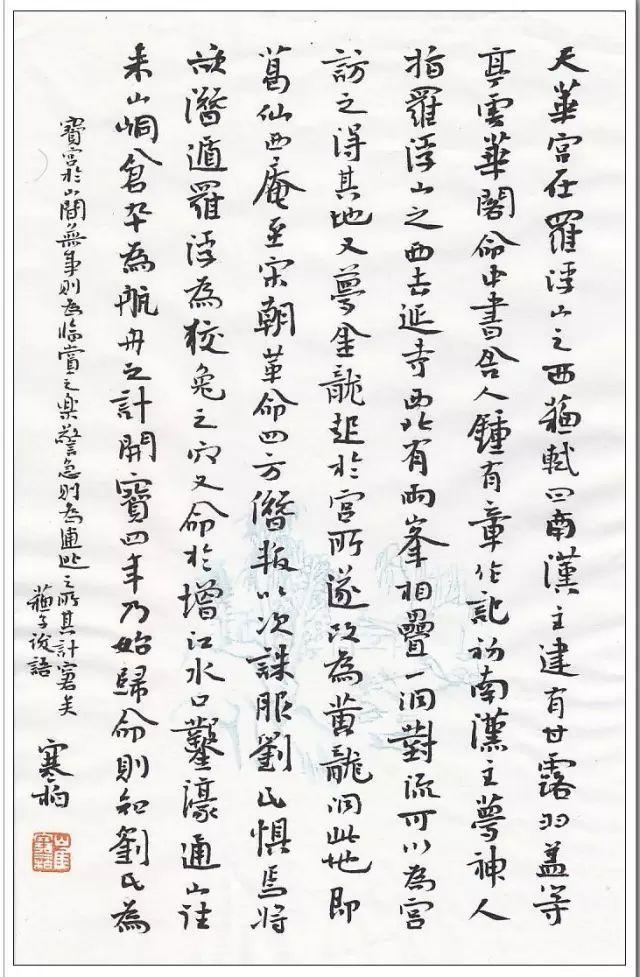 天華宮在羅浮山之西蘇軾曰南漢主建有甘露羽蓋等
亭雲華閣命中書舍人鍾有章作記初南漢主夢神人
指羅浮山之西去延寺西北有兩峯相疊一洞對流可以為宮
訪之得其地又夢金龍起於宮所遂改為黃龍洞此地即
葛仙西庵至宋朝革命四方僭叛以次誅服劉氏懼焉將
欲潛遁羅浮為狡兔之穴又命於增江水口鑿濠通山往
來山峒倉卒為航舟之計開寶四年乃始歸命則知劉氏為
寶宮於山間無事則為臨賞之樂警急則為逋逃之所其計窘矣
蘇子說語
寒柏